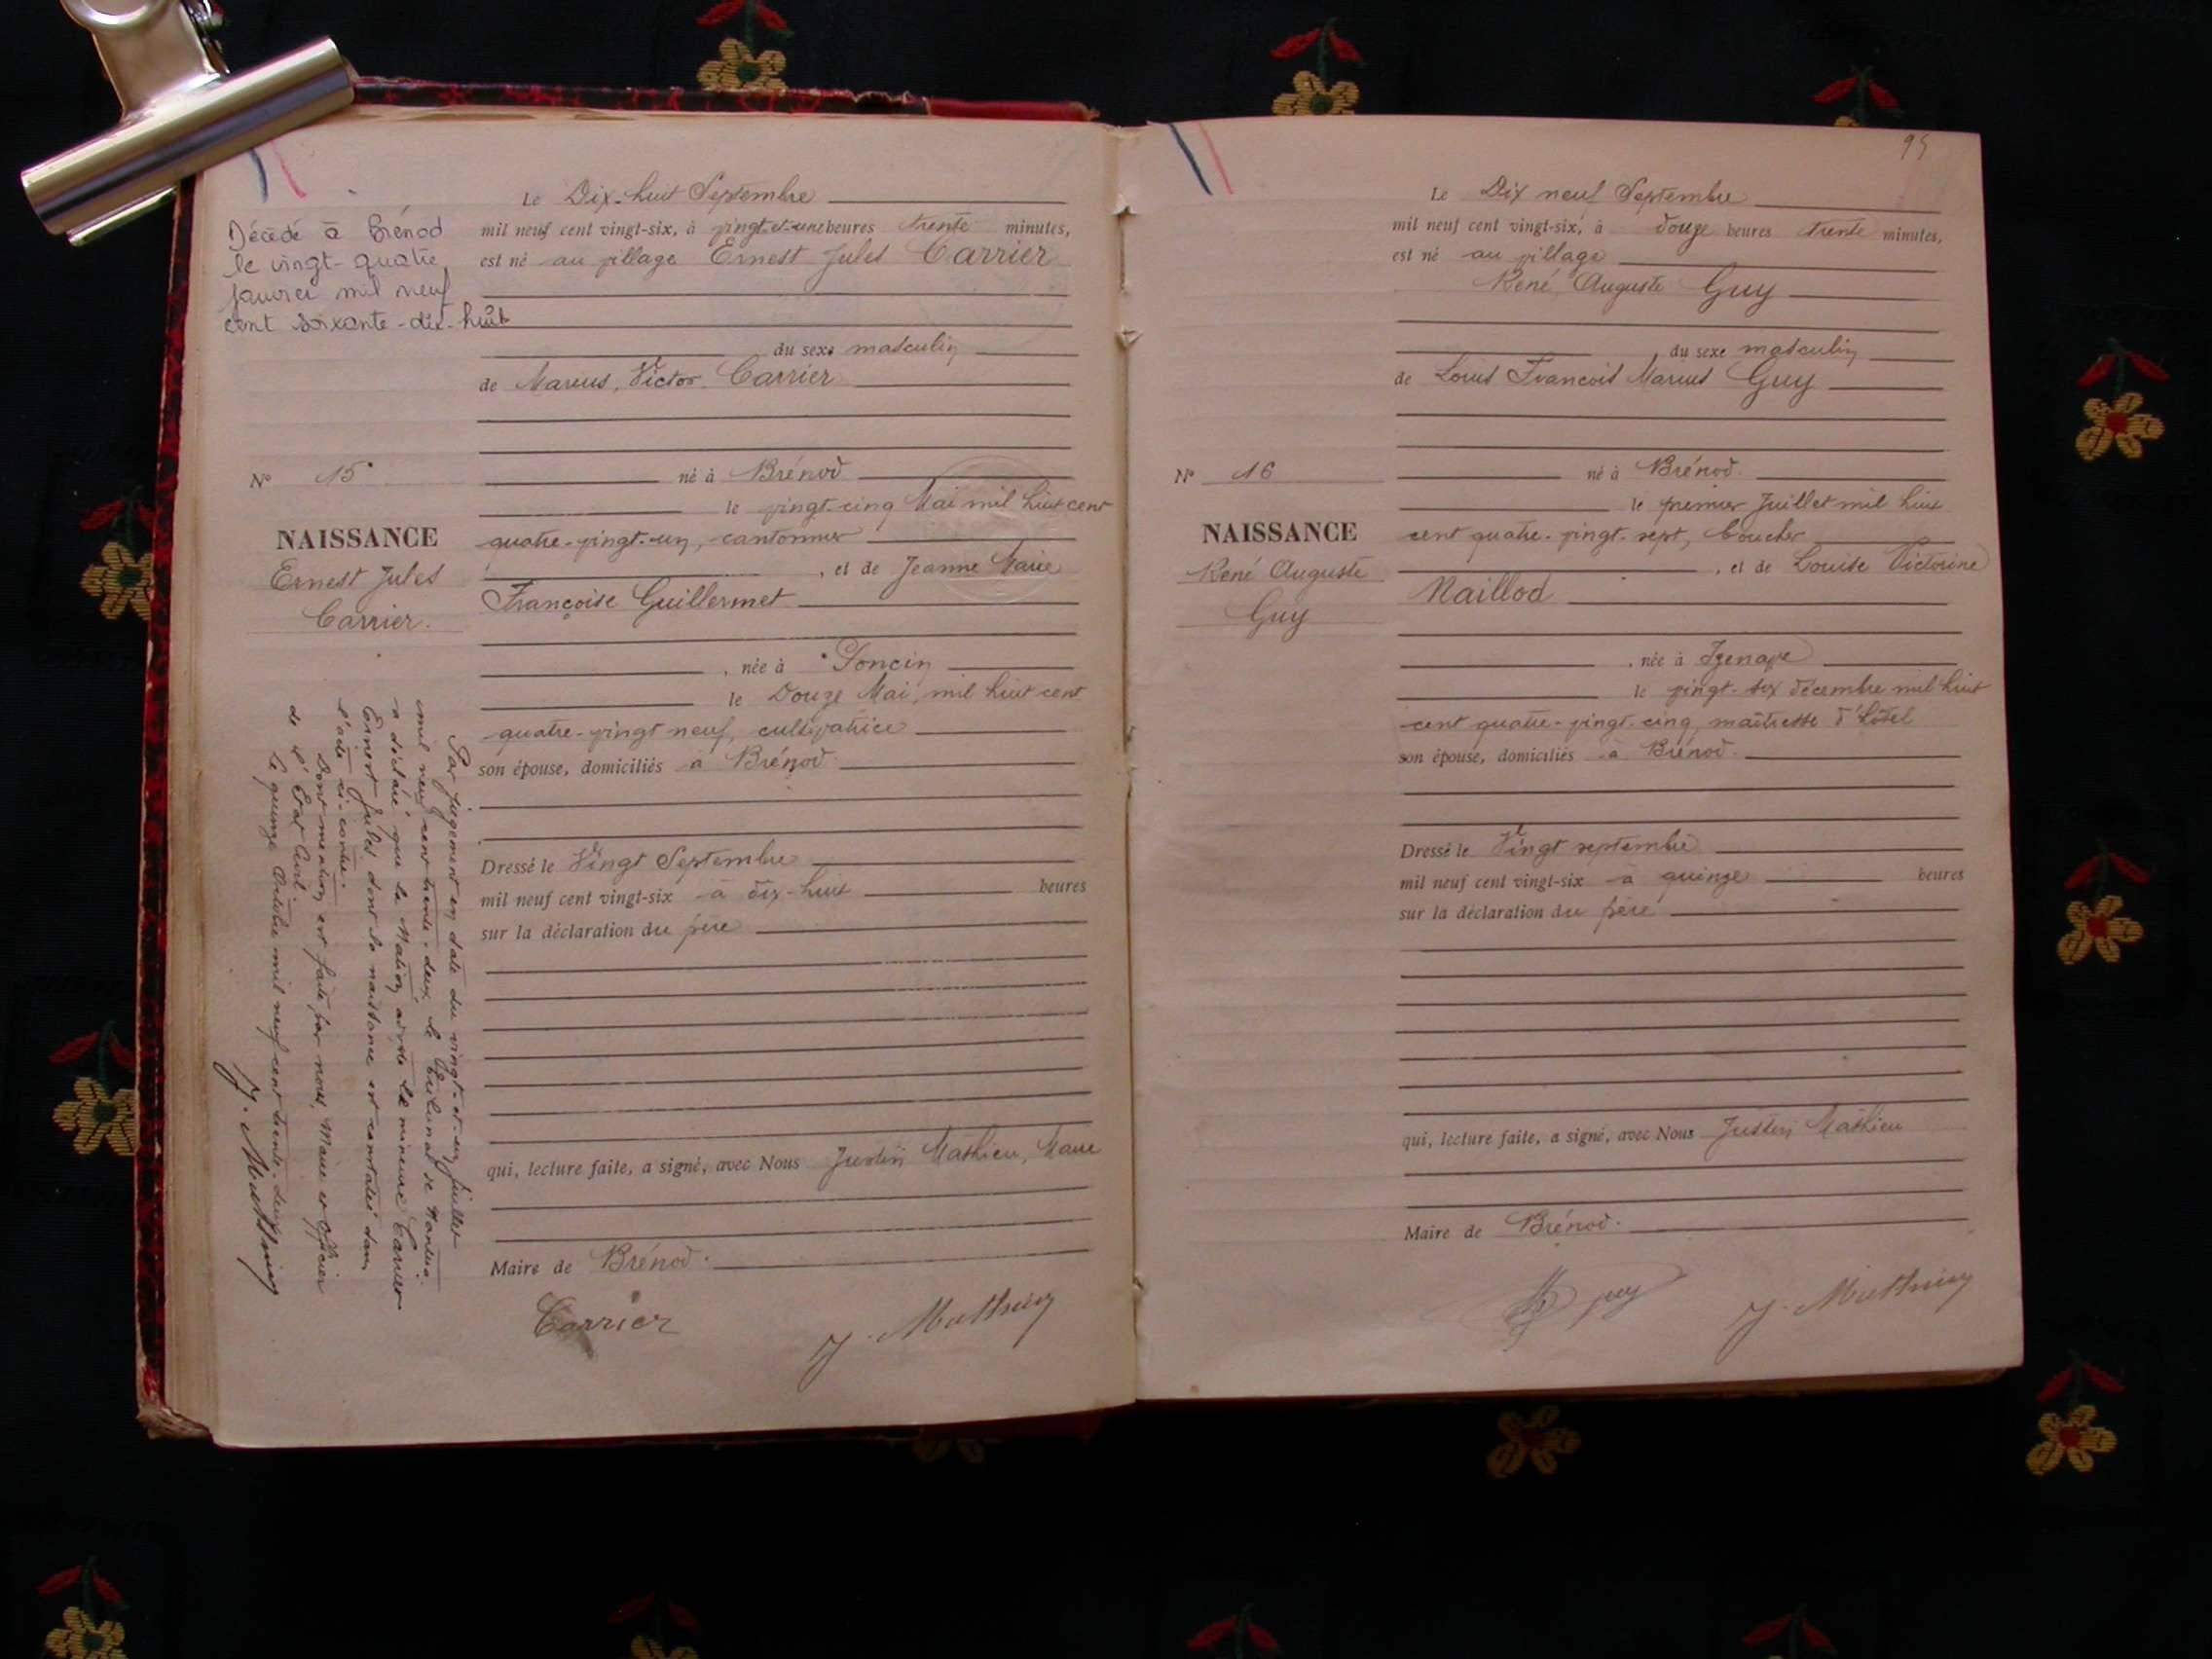 Le Dix-huit Septembre
mil neuf cent vingt-six, à vingt-et-une heures trente minutes,
est né au village Ernest Jules Carrier
du sexe masculin
de Marius, Victor Carrier
né à Brénod
le vingt-cinq Mai mil huit cent
quatre-vingt-un, cantonnier
, et de Jeanne Marie
Françoise Guillermet
, née à Poncin
le Douze Mai, mil huit cent
quatre-vingt neuf, cultivatrice
son épouse, domiciliés à Brénod
Dressé le Vingt Septembre
mil neuf cent vingt-six à dix-huit heures
sur la déclaration du père
qui, lecture faite, a signé, avec Nous Justin Mathieu, Maire
Maire de Brénod.
Carrier
J. Mathieu
Décédé à Brénod
le vingt-quatre
janvier mil neuf
cent soixante-dix-huit
N° 15
NAISSANCE
Ernest Jules
Carrier.
Par jugement en date du vingt-et-un juillet
mil neuf cent trente-deux le Tribunal de Nantua
a déclaré que la Nation adopte le mineur Carrier
Ernest Jules dont la naissance est constatée dans
l'acte ci-contre.
Dont mention est faite par nous, Maire et Officier
de l'Etat Civil.
Le quinze Octobre mil neuf cent trente-deux
J. Mathieu
95
Le Dix neuf Septembre
mil neuf cent vingt-six, à douze heures trente minutes,
est né au village
René Auguste Guy
du sexe masculin
de Louis François Marius Guy
né à Brénod.
le premier Juillet mil huit
cent quatre-vingt-sept, boucher
, et de Louise Victorine
Maillod
, née à Izenave
le vingt-six décembre mil huit
cent quatre-vingt-cinq, maîtresse d'hôtel
son épouse, domiciliés à Brénod.
Dressé le Vingt septembre
mil neuf cent vingt-six à quinze heures
sur la déclaration du père
qui, lecture faite, a signé, avec Nous Justin Mathieu
Maire de Brénod.
Guy
J. Mathieu
N° 16
NAISSANCE
René Auguste
Guy